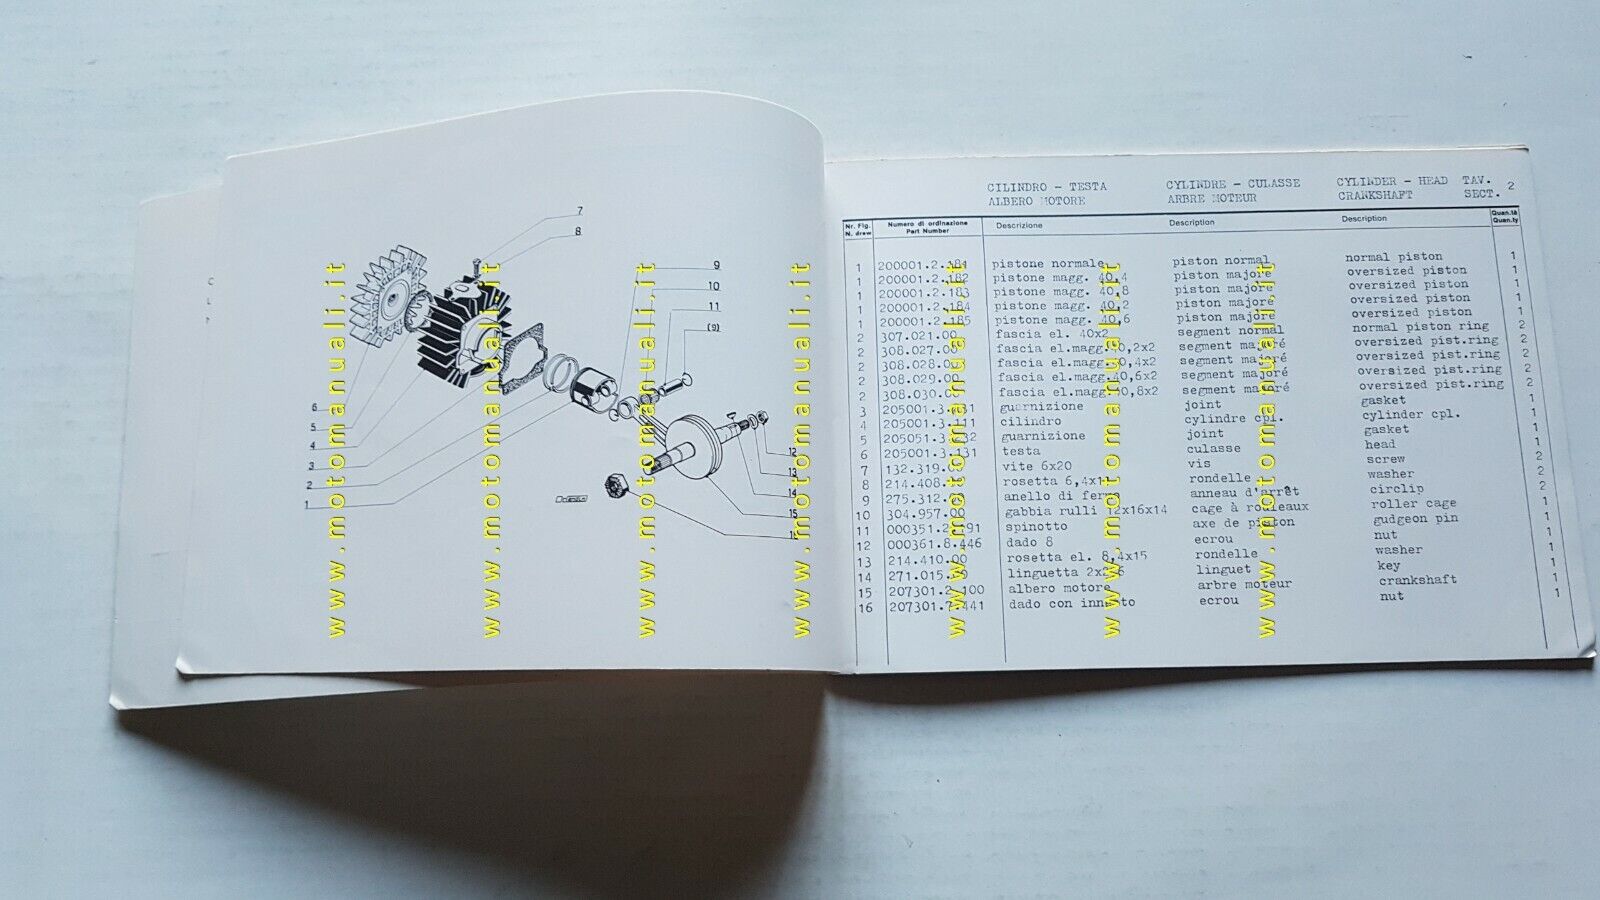 CILINDRO - TESTA CYLINDRE - CULASSE CYLINDER - HEAD TAV. 2
ALBERO MOTORE ARBRE MOTEUR CRANKSHAFT SECT.
Nr. Fig. Numero di ordinazione Descrizione Description Description Quan.tà
N. draw Part Number Quan.ty
1 200001.2.181 pistone normale piston normal normal piston 1
1 200001.2.182 pistone magg. 40,4 piston majoré oversized piston 1
1 200001.2.183 pistone magg. 40,8 piston majoré oversized piston 1
1 200001.2.184 pistone magg. 40,2 piston majoré oversized piston 1
1 200001.2.185 pistone magg. 40,6 piston majoré oversized piston 1
2 307.021.00 fascia el. 40x2 segment normal normal piston ring 2
2 308.027.00 fascia el.magg.40,2x2 segment majoré oversized pist.ring 2
2 308.028.00 fascia el.magg.40,4x2 segment majoré oversized pist.ring 2
2 308.029.00 fascia el.magg.40,6x2 segment majoré oversized pist.ring 2
2 308.030.00 fascia el.magg.40,8x2 segment majoré oversized pist.ring 2
3 guarnizione joint gasket 1
4 205001.3.111 cilindro cylindre cpl. cylinder cpl. 1
5 guarnizione joint gasket 1
6 205001.3.131 testa culasse head 1
7 132.319.00 vite 6x20 vis screw 2
8 rosetta rondelle washer 2
9 275.312.00 anello di fermo anneau d'arrêt circlip 2
10 304.957.00 gabbia rulli 12x16x14 cage à rouleaux roller cage 1
11 spinotto axe de piston gudgeon pin 1
12 000361.8.446 dado 8 ecrou nut 1
13 214.410.00 rosetta el. 8,4x15 rondelle washer 1
14 linguetta linguet key 1
15 207301.2.100 albero motore arbre moteur crankshaft 1
16 dado con innesto ecrou nut 1
7
8
9
10
11
(9)
6
5
4
3
2
1
12
13
14
15
www.motomanuali.it
www.motomanuali.it
www.motomanuali.it
www.motomanuali.it
www.motomanuali.it
www.motomanuali.it
www.motomanuali.it